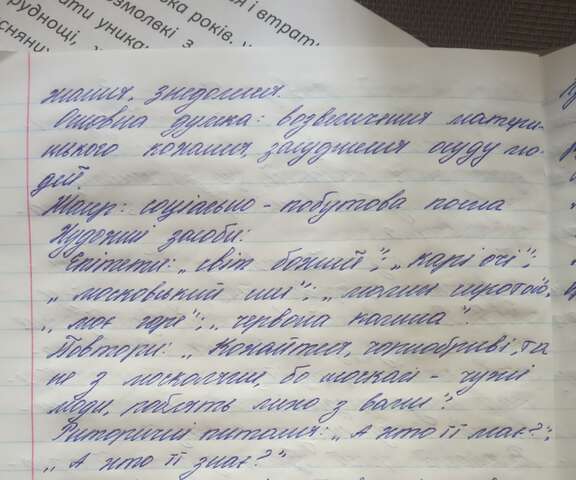 ска років. У
я і втрат
озмолвкі з
ати уник
руднощі,
сняни
жання, знедолення.
Основна думка: возвеличення матери-
нського кохання, засудження осуду лю-
дей.
Жанр: соціально - побутова поема
Художні засоби:
Епітети: „світ божий"; „карі очі";
„московський
„моє горе"; „червона калина".
Повтори: „Кохайтеся, чорнобриві, та
не з москалями, бо москалі - чужі
люди, роблять лихо з вами".
Риторичні питання: „А хто її має?";
„А хто її знає?"